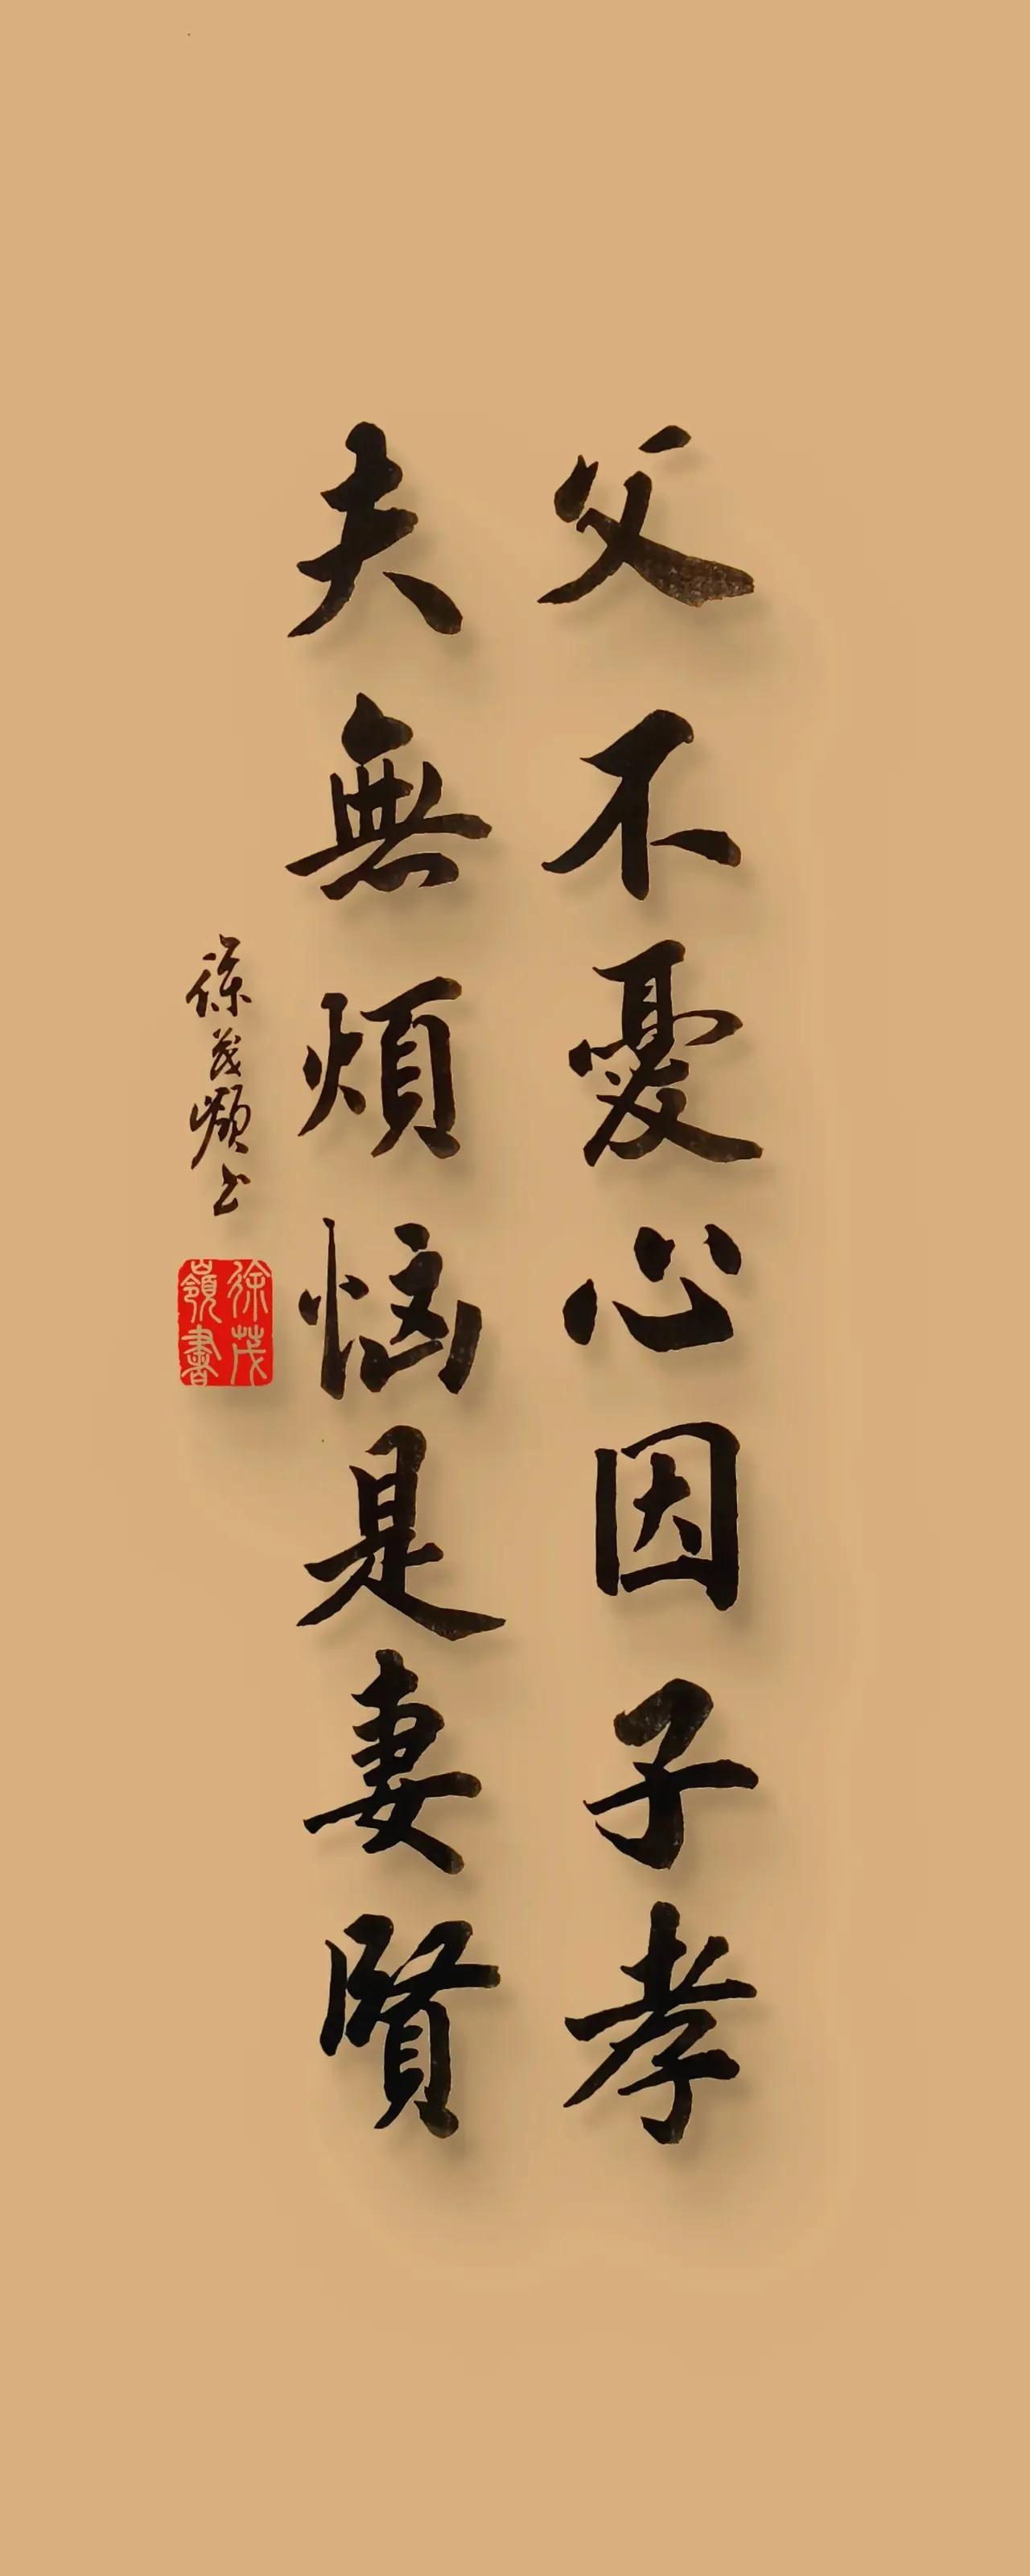 父不憂心因子孝
夫無煩惱是妻賢
徐茂嶺书
徐茂
嶺書